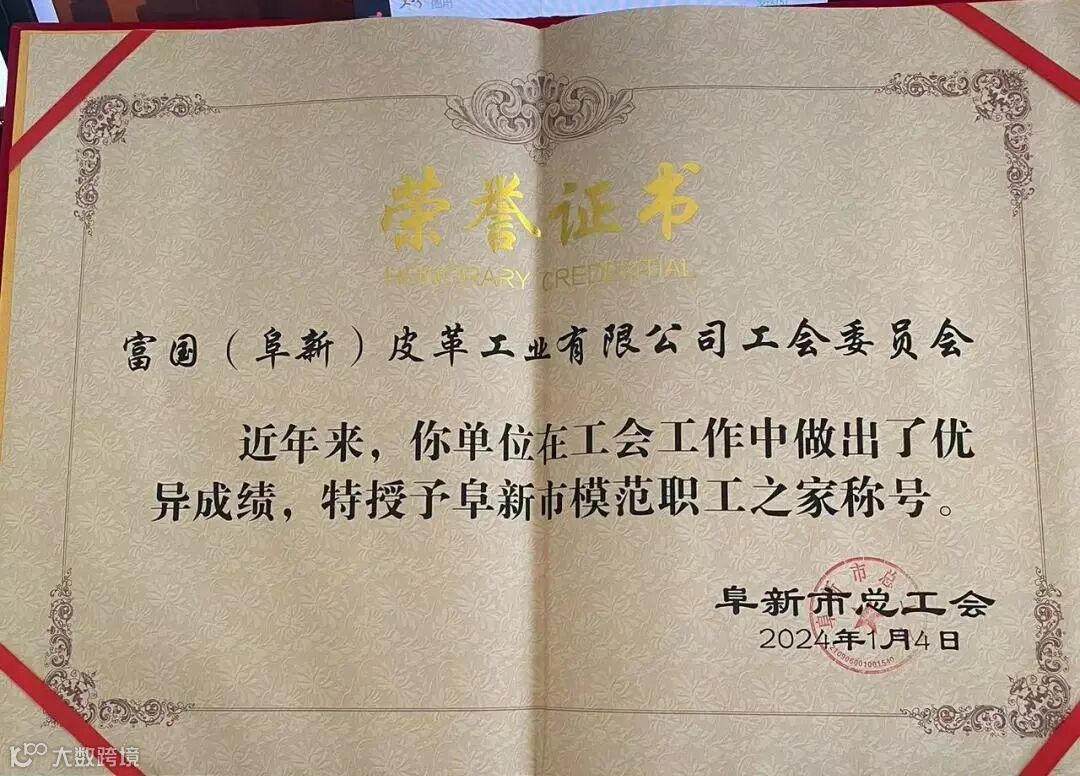 荣誉证书
HONORARY CREDENTIAL
富国（阜新）皮革工业有限公司工会委员会
近年来，你单位在工会工作中做出了优
异成绩，特授予阜新市模范职工之家称号。
阜新市总工会
2024年1月4日
大数跨境